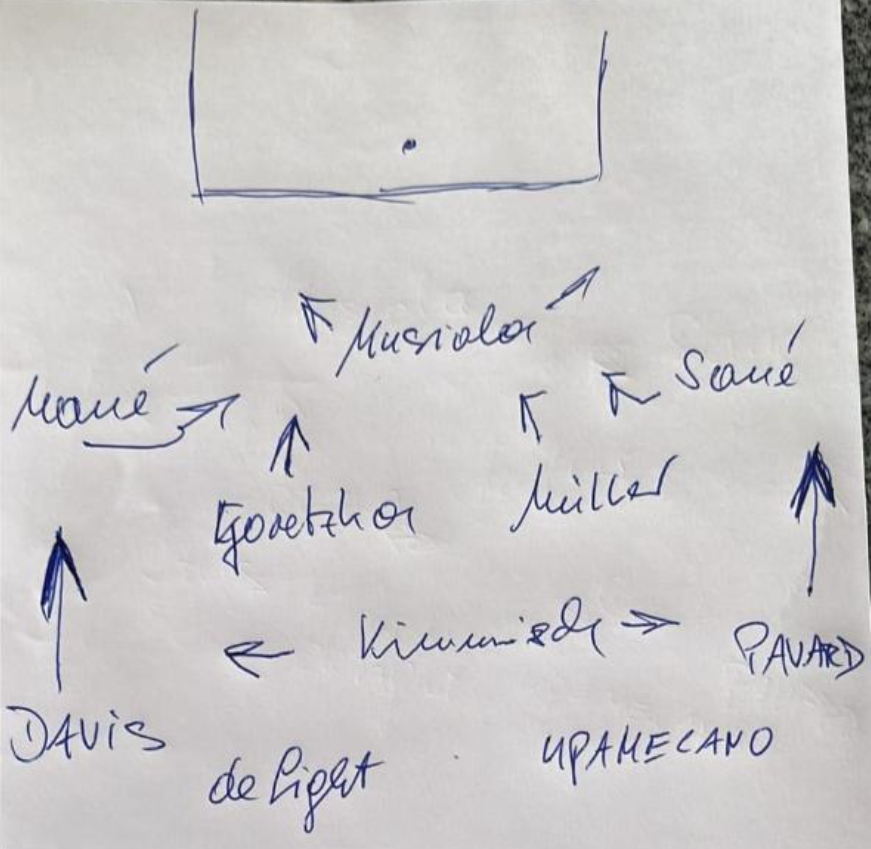 Musiala
Mané Sané
Goretzka Müller
Kimmich PAVARD
DAVIS UPAMECANO
de Light